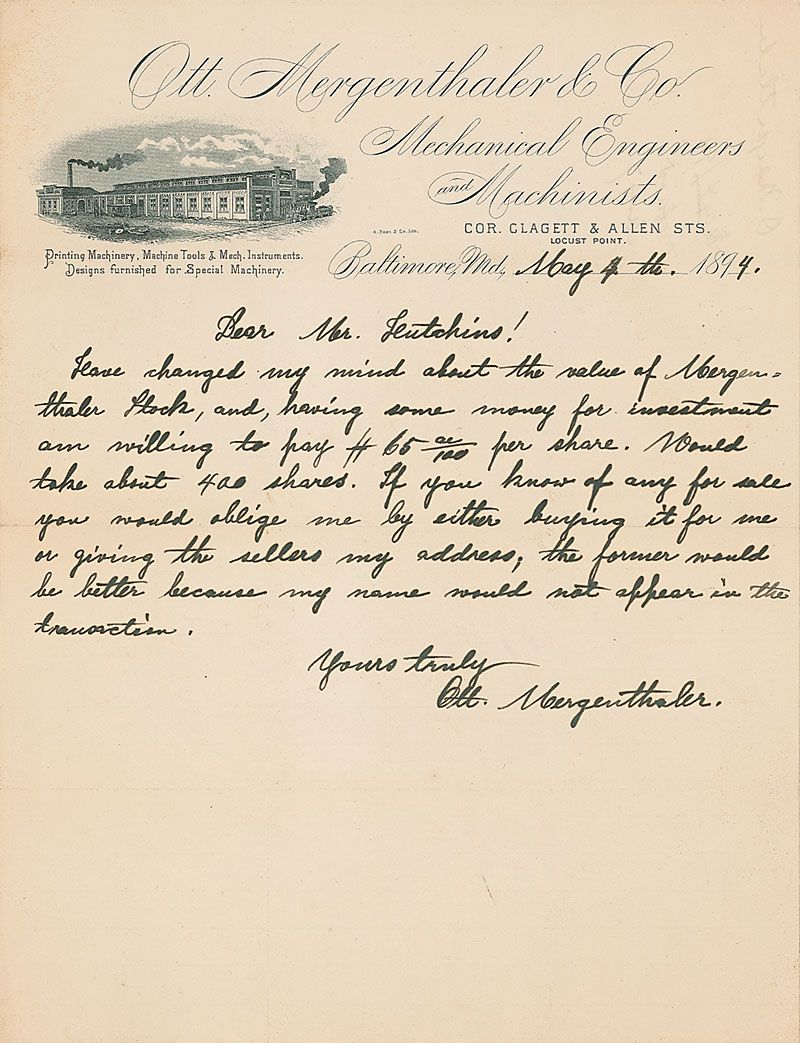 Ott. Mergenthaler & Co.
Mechanical Engineers
and Machinists.
A. Hoen & Co. Lith.
COR. CLAGETT & ALLEN STS.
LOCUST POINT.
Printing Machinery, Machine Tools & Mech. Instruments.
Designs furnished for Special Machinery.
Baltimore, Md, May 4 th. 1894.
Dear Mr. Hutchins!
Have changed my mind about the value of Mergen=
thaler Stock, and, having some money for investment
am willing to pay $ 65 00/100 per share. Would
take about 400 shares. If you know of any for sale
you would oblige me by either buying it for me
or giving the sellers my address; the former would
be better because my name would not appear in the
transaction.
Yours truly
Ott. Mergenthaler.